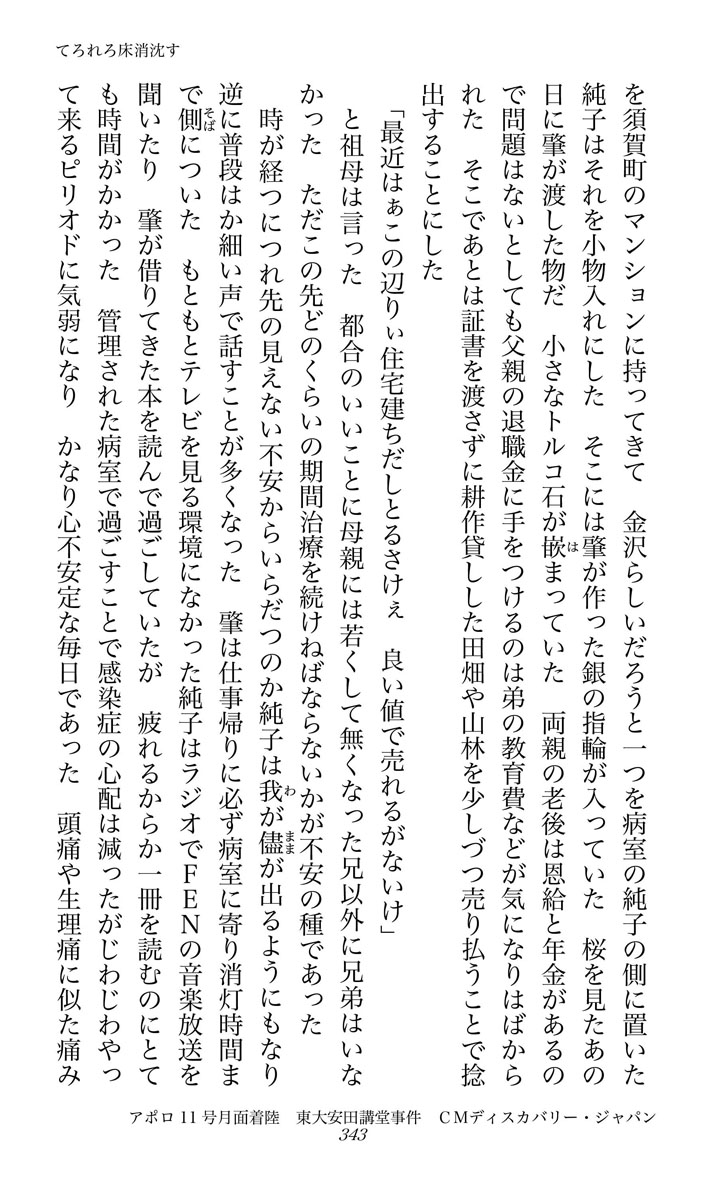 てろれろ床消沈す
を須賀町のマンションに持ってきて　金沢らしいだろうと一つを病室の純子の側に置いた
純子はそれを小物入れにした　そこには肇が作った銀の指輪が入っていた　桜を見たあの
日に肇が渡した物だ　小さなトルコ石が嵌まっていた　両親の老後は恩給と年金があるの
で問題はないとしても父親の退職金に手をつけるのは弟の教育費などが気になりはばから
れた　そこであとは証書を渡さずに耕作貸しした田畑や山林を少しづつ売り払うことで捻
出することにした
「最近はぁこの辺りぃ住宅建ちだしとるさけぇ　良い値で売れるがないけ」
と祖母は言った　都合のいいことに母親には若くして無くなった兄以外に兄弟はいな
かった　ただこの先どのくらいの期間治療を続けねばならないかが不安の種であった
時が経つにつれ先の見えない不安からいらだつのか純子は我が儘が出るようにもなり
逆に普段はか細い声で話すことが多くなった　肇は仕事帰りに必ず病室に寄り消灯時間ま
で側についた　もともとテレビを見る環境になかった純子はラジオでＦＥＮの音楽放送を
聞いたり　肇が借りてきた本を読んで過ごしていたが　疲れるからか一冊を読むのにとて
も時間がかかった　管理された病室で過ごすことで感染症の心配は減ったがじわじわやっ
て来るピリオドに気弱になり　かなり心不安定な毎日であった　頭痛や生理痛に似た痛み
アポロ 11 号月面着陸　東大安田講堂事件　ＣＭディスカバリー・ジャパン
343